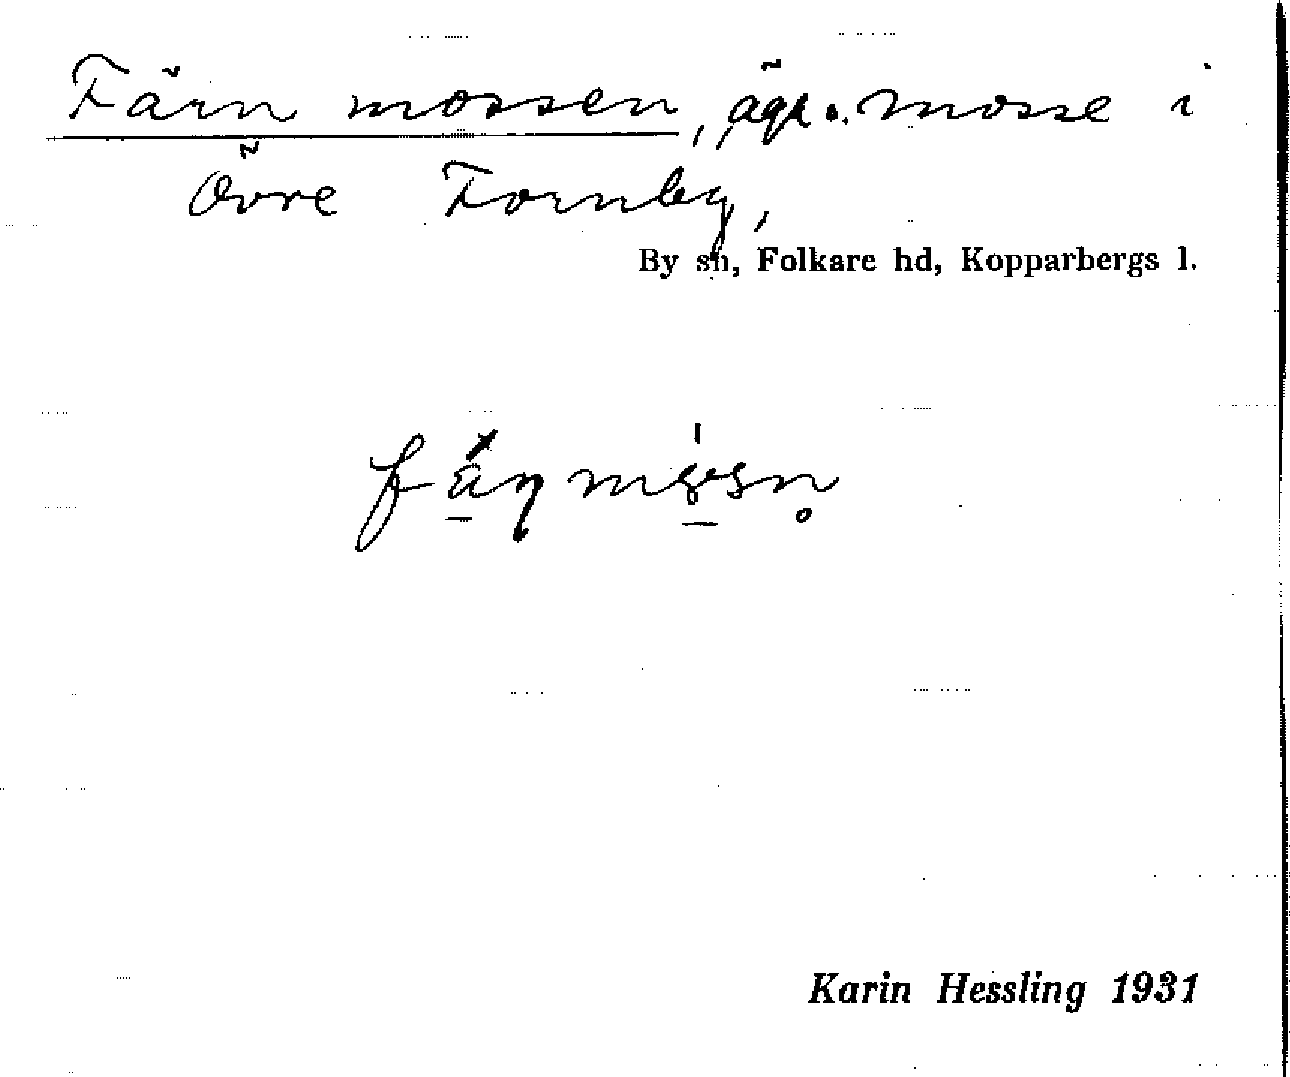 Färnmossen, ägo. mosse i
Övre Fornby,
By sn, Folkare hd, Kopparbergs l.
Karin Hessling 1931